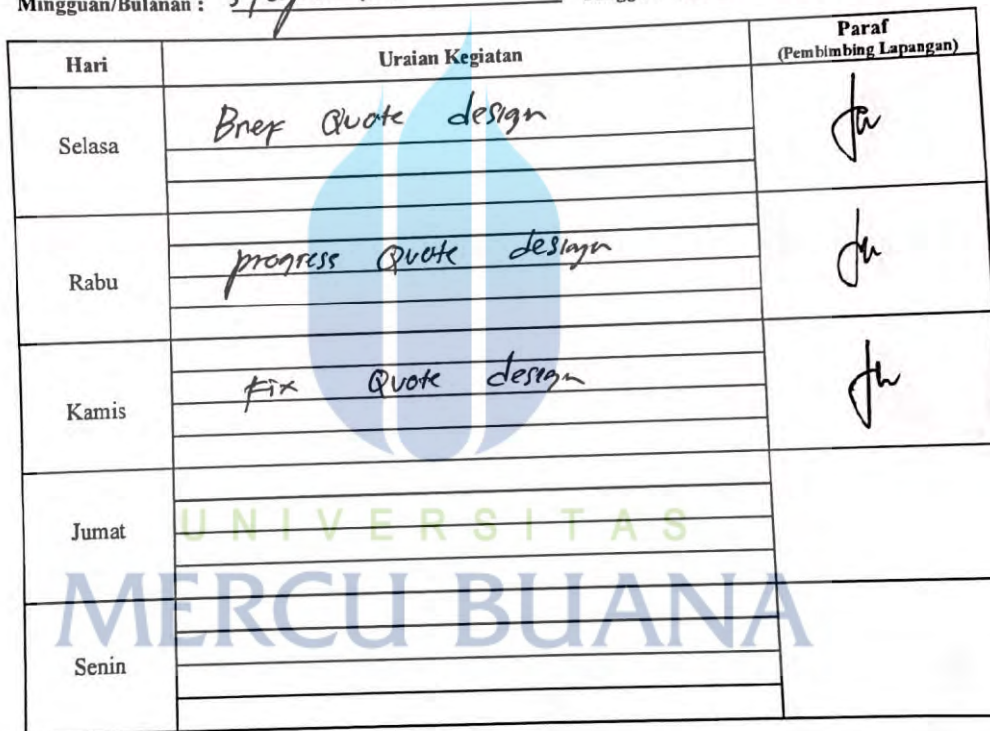 Mingguan/Bulanan :
Hari Uraian Kegiatan Paraf
(Pembimbing Lapangan)
Selasa Brief Quote design
Rabu progress Quote design
Kamis Fix Quote design
Jumat
UNIVERSITAS
MERCU BUANA
Senin